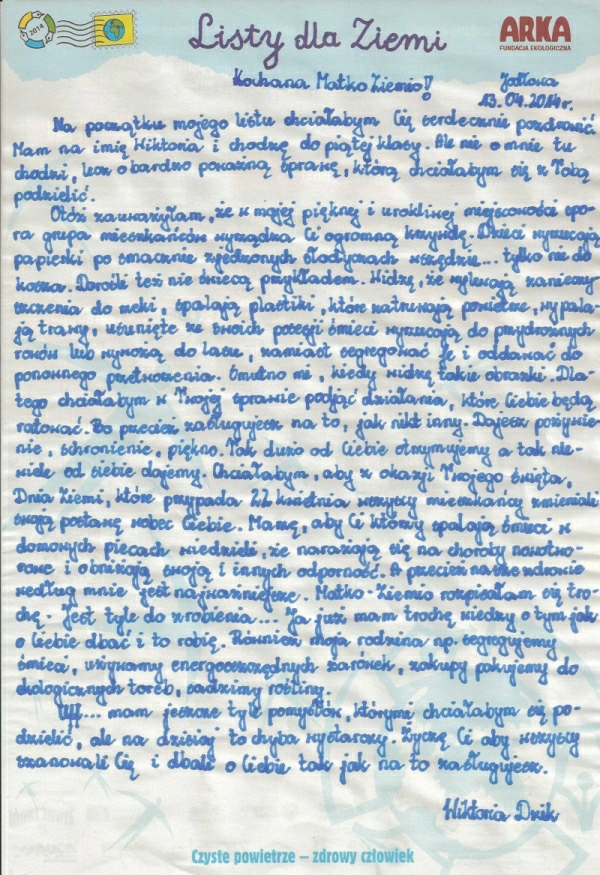 2014
Listy dla Ziemi
ARKA
FUNDACJA EKOLOGICZNA
Kochana Matko Ziemio!
Jodłowa
13.04.2014r.
Na początku mojego listu chciałabym Cię serdecznie pozdrowić.
Mam na imię Wiktoria i chodzę do piątej klasy. Ale nie o mnie tu
chodzi, lecz o bardzo poważną sprawę, którą chciałabym się z Tobą
podzielić.
Otóż zauważyłam, że w mojej pięknej i urokliwej miejscowości spo-
ra grupa mieszkańców wyrządza Ci ogromną krzywdę. Dzieci wyrzucają
papierki po smacznie zjedzonych słodyczach wszędzie... tylko nie do
kosza. Dorośli też nie świecą przykładem. Widzę, że wylewają zanieczy-
szczenia do rzeki, spalają plastiki, które zatruwają powietrze, wypala-
ją trawy, usunięte ze swoich posesji śmieci wyrzucają do przydrożnych
rowów lub wywożą do lasu, zamiast segregować je i oddawać do
ponownego przetworzenia. Smutno mi, kiedy widzę takie obrazki. Dla-
tego chciałabym w Twojej sprawie podjąć działania, które Ciebie będą
ratować. Bo przecież zasługujesz na to, jak nikt inny. Dajesz pożywie-
nie, schronienie, piękno. Tak dużo od Ciebie otrzymujemy a tak nie-
wiele od siebie dajemy. Chciałabym, aby z okazji Twojego święta,
Dnia Ziemi, które przypada 22 kwietnia wszyscy mieszkańcy zmieniali
swoją postawę wobec Ciebie. Marzę, aby Ci którzy spalają śmieci w
domowych piecach wiedzieli, że narażają się na choroby nowotwo-
rowe i obniżają swoją i innych odporność. A przecież nasze zdrowie
według mnie jest najważniejsze. Matko-Ziemio rozpisałam się tro-
chę. Jest tyle do zrobienia... Ja już mam trochę wiedzy o tym jak
o Ciebie dbać i to robię. Również moja rodzina np. segregujemy
śmieci, używamy energooszczędnych żarówek, zakupy pakujemy do
ekologicznych toreb, sadzimy rośliny.
Uff... mam jeszcze tyle pomysłów, którymi chciałabym się po-
dzielić, ale na dzisiaj to chyba wystarczy. Życzę Ci aby wszyscy
szanowali Cię i dbali o Ciebie tak jak na to zasługujesz.
Wiktoria
Czyste powietrze – zdrowy człowiek